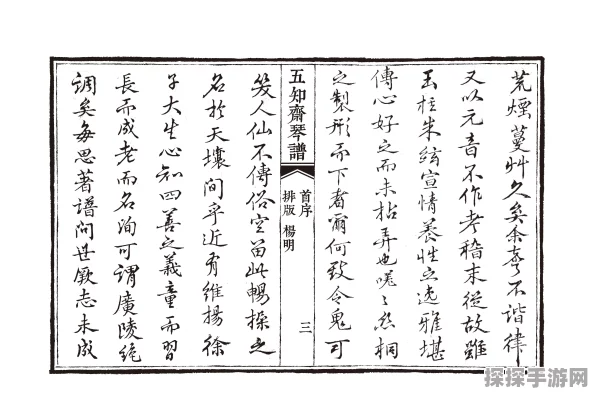 荒煙蔓艸久矣余素不諧律
又以元音不作考稽末從故雖
玉柱朱絃宣情養性之逸雅堪
傳心好之而未拈弄也嗟〻絲桐
之製形而下者爾何致令鬼可
五知齋琴譜
首序
排版 楊明
三
笑人仙不傳俗空留此暢操之
名於天壤間乎近有維揚徐
子大生心知四善之義童而習
長而成老而名洵可謂廣陵絕
調矣每思著譜問世厥志未成
探探手游网